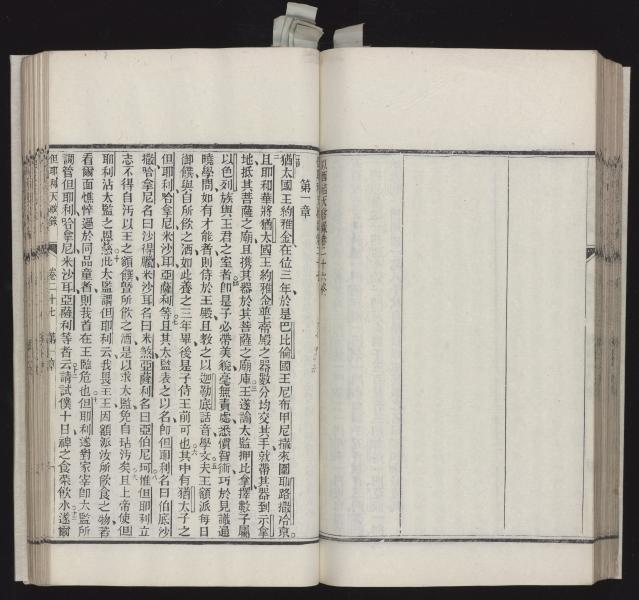 第一章
猶太國王約雅金在位三年於是巴比倫國王尼布甲尼撒來圍耶路撒冷京
且耶和華將猶太國王約雅金並上帝殿之器數分均交其手就帶其器到示拿
地抵其菩薩之廟且攜其器於其菩薩之廟庫王遂諭太監押比拿擇數子屬
以色列族與王君之室者卽是子必帶美貌毫無責處悉慣智術巧於見識通
曉學問如有才能者則侍於王殿且教之以迦勒底話音學文夫王額派每日
御饌與自所飲之酒如此養之三年畢後是子侍王前可也其中有猶太子之
但耶利哈拿尼米沙耳亞薩利等且其太監表之以名卽但耶利名曰伯底沙
撒哈拿尼名曰沙得臘米沙耳名曰米煞亞薩利名曰亞伯尼坷惟但耶利立
志不得自污以王之額饌曁所飲之酒是以求太監免自玷污矣且上帝使但
耶利沾太監之恩慈此太監謂但耶利云我畏王王因額派汝所飲食之物若
看爾面憔悴過於同品童者則我首在王臨危也但耶利遂對家宰卽太監所
調管但耶利哈拿尼米沙耳亞薩利等者云請試僕十日俾之食菜飲水遂爾
但耶利天啟錄 卷二十七 第一章